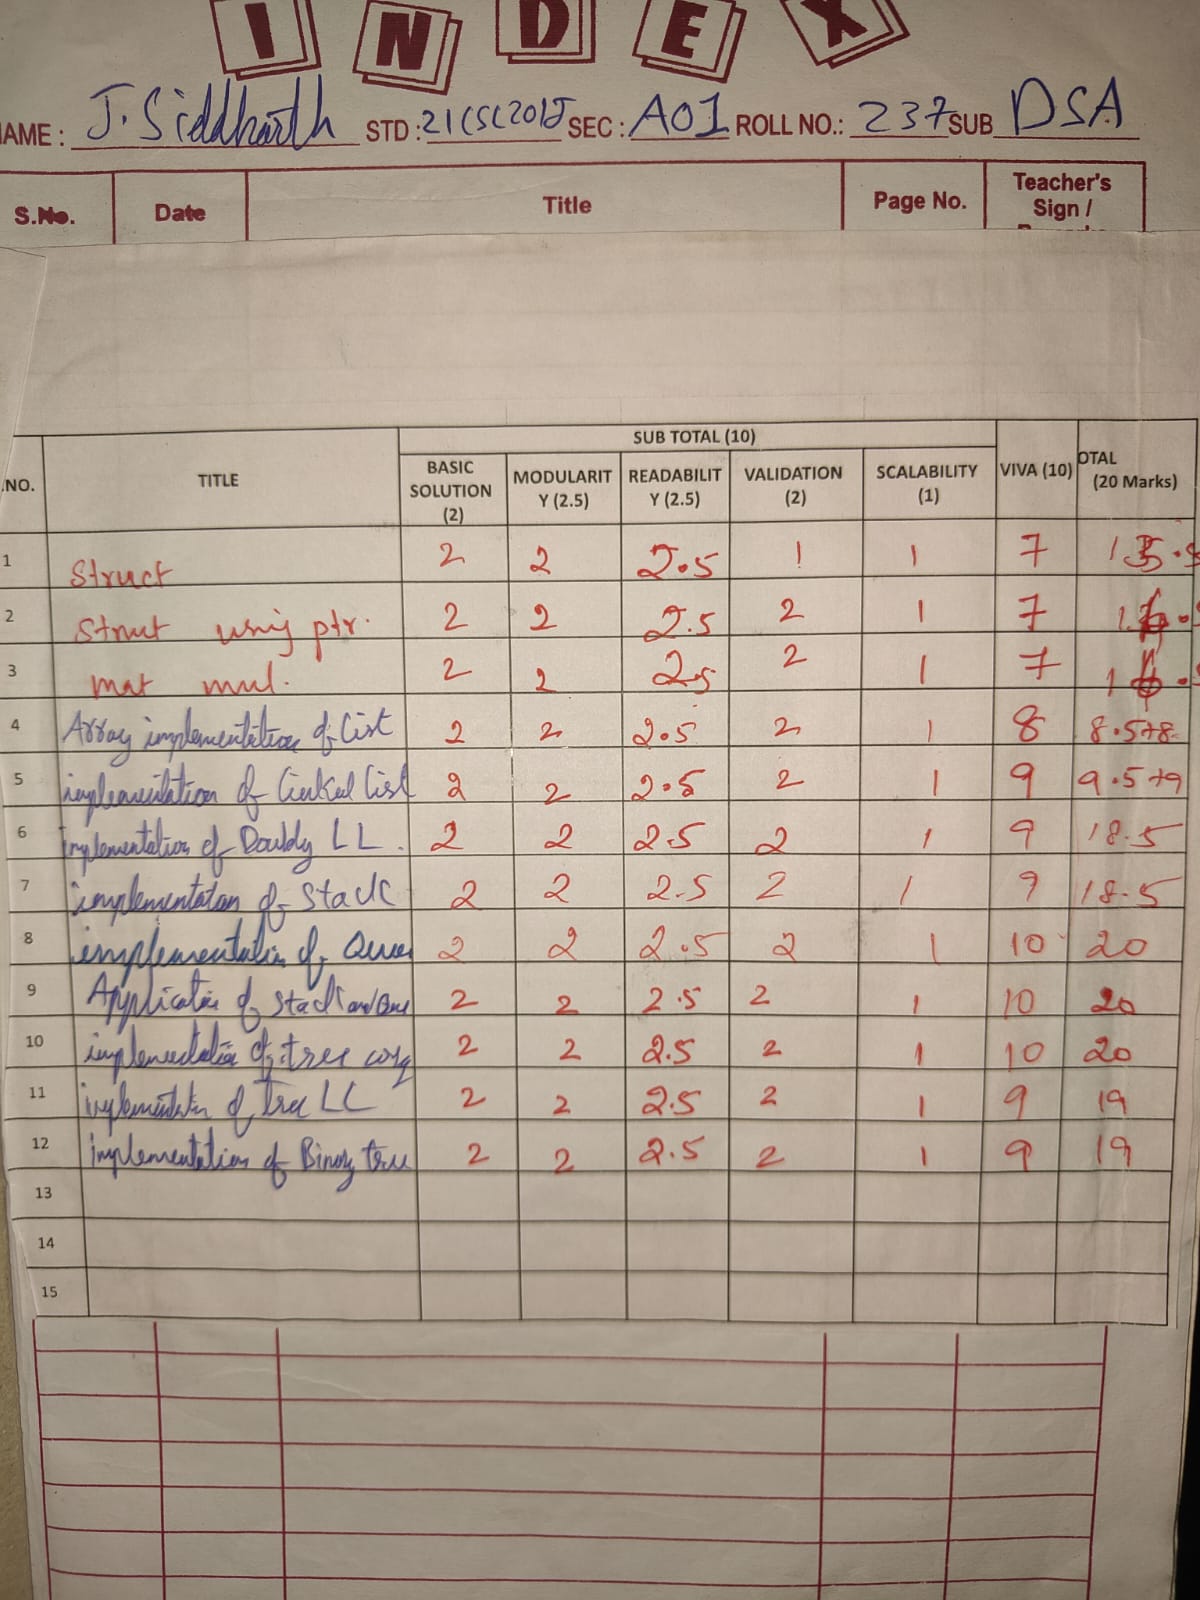 INDEX
NAME: J. Siddharth STD: 21CSC201J SEC: A01 ROLL NO.: 237 SUB DSA
S.No. Date Title Page No. Teacher's Sign /
SUB TOTAL (10)
.NO. TITLE BASIC SOLUTION (2) MODULARITY (2.5) READABILITY (2.5) VALIDATION (2) SCALABILITY (1) VIVA (10) OTAL (20 Marks)
1 Struct 2 2 2.5 1 1 7
2 Strut using ptr. 2 2 2.5 2 1 7
3 mat mul. 2 2 2.5 2 1 7
4 Array implementation of List 2 2 2.5 2 1 8 8.5+8
5 implementation of Linked List 2 2 2.5 2 1 9 9.5+9
6 Implementation of Doubly LL. 2 2 2.5 2 1 9 18.5
7 implementation of Stack 2 2 2.5 2 1 9 18.5
8 implementation of 2 2 2.5 2 1 10 20
9 Application of Stack and 2 2 2.5 2 1 10 20
10 implementation of tree 2 2 2.5 2 1 10 20
11 implementation of Tree LL 2 2 2.5 2 1 9 19
12 implementation of Binary tree 2 2 2.5 2 1 9 19
13
14
15